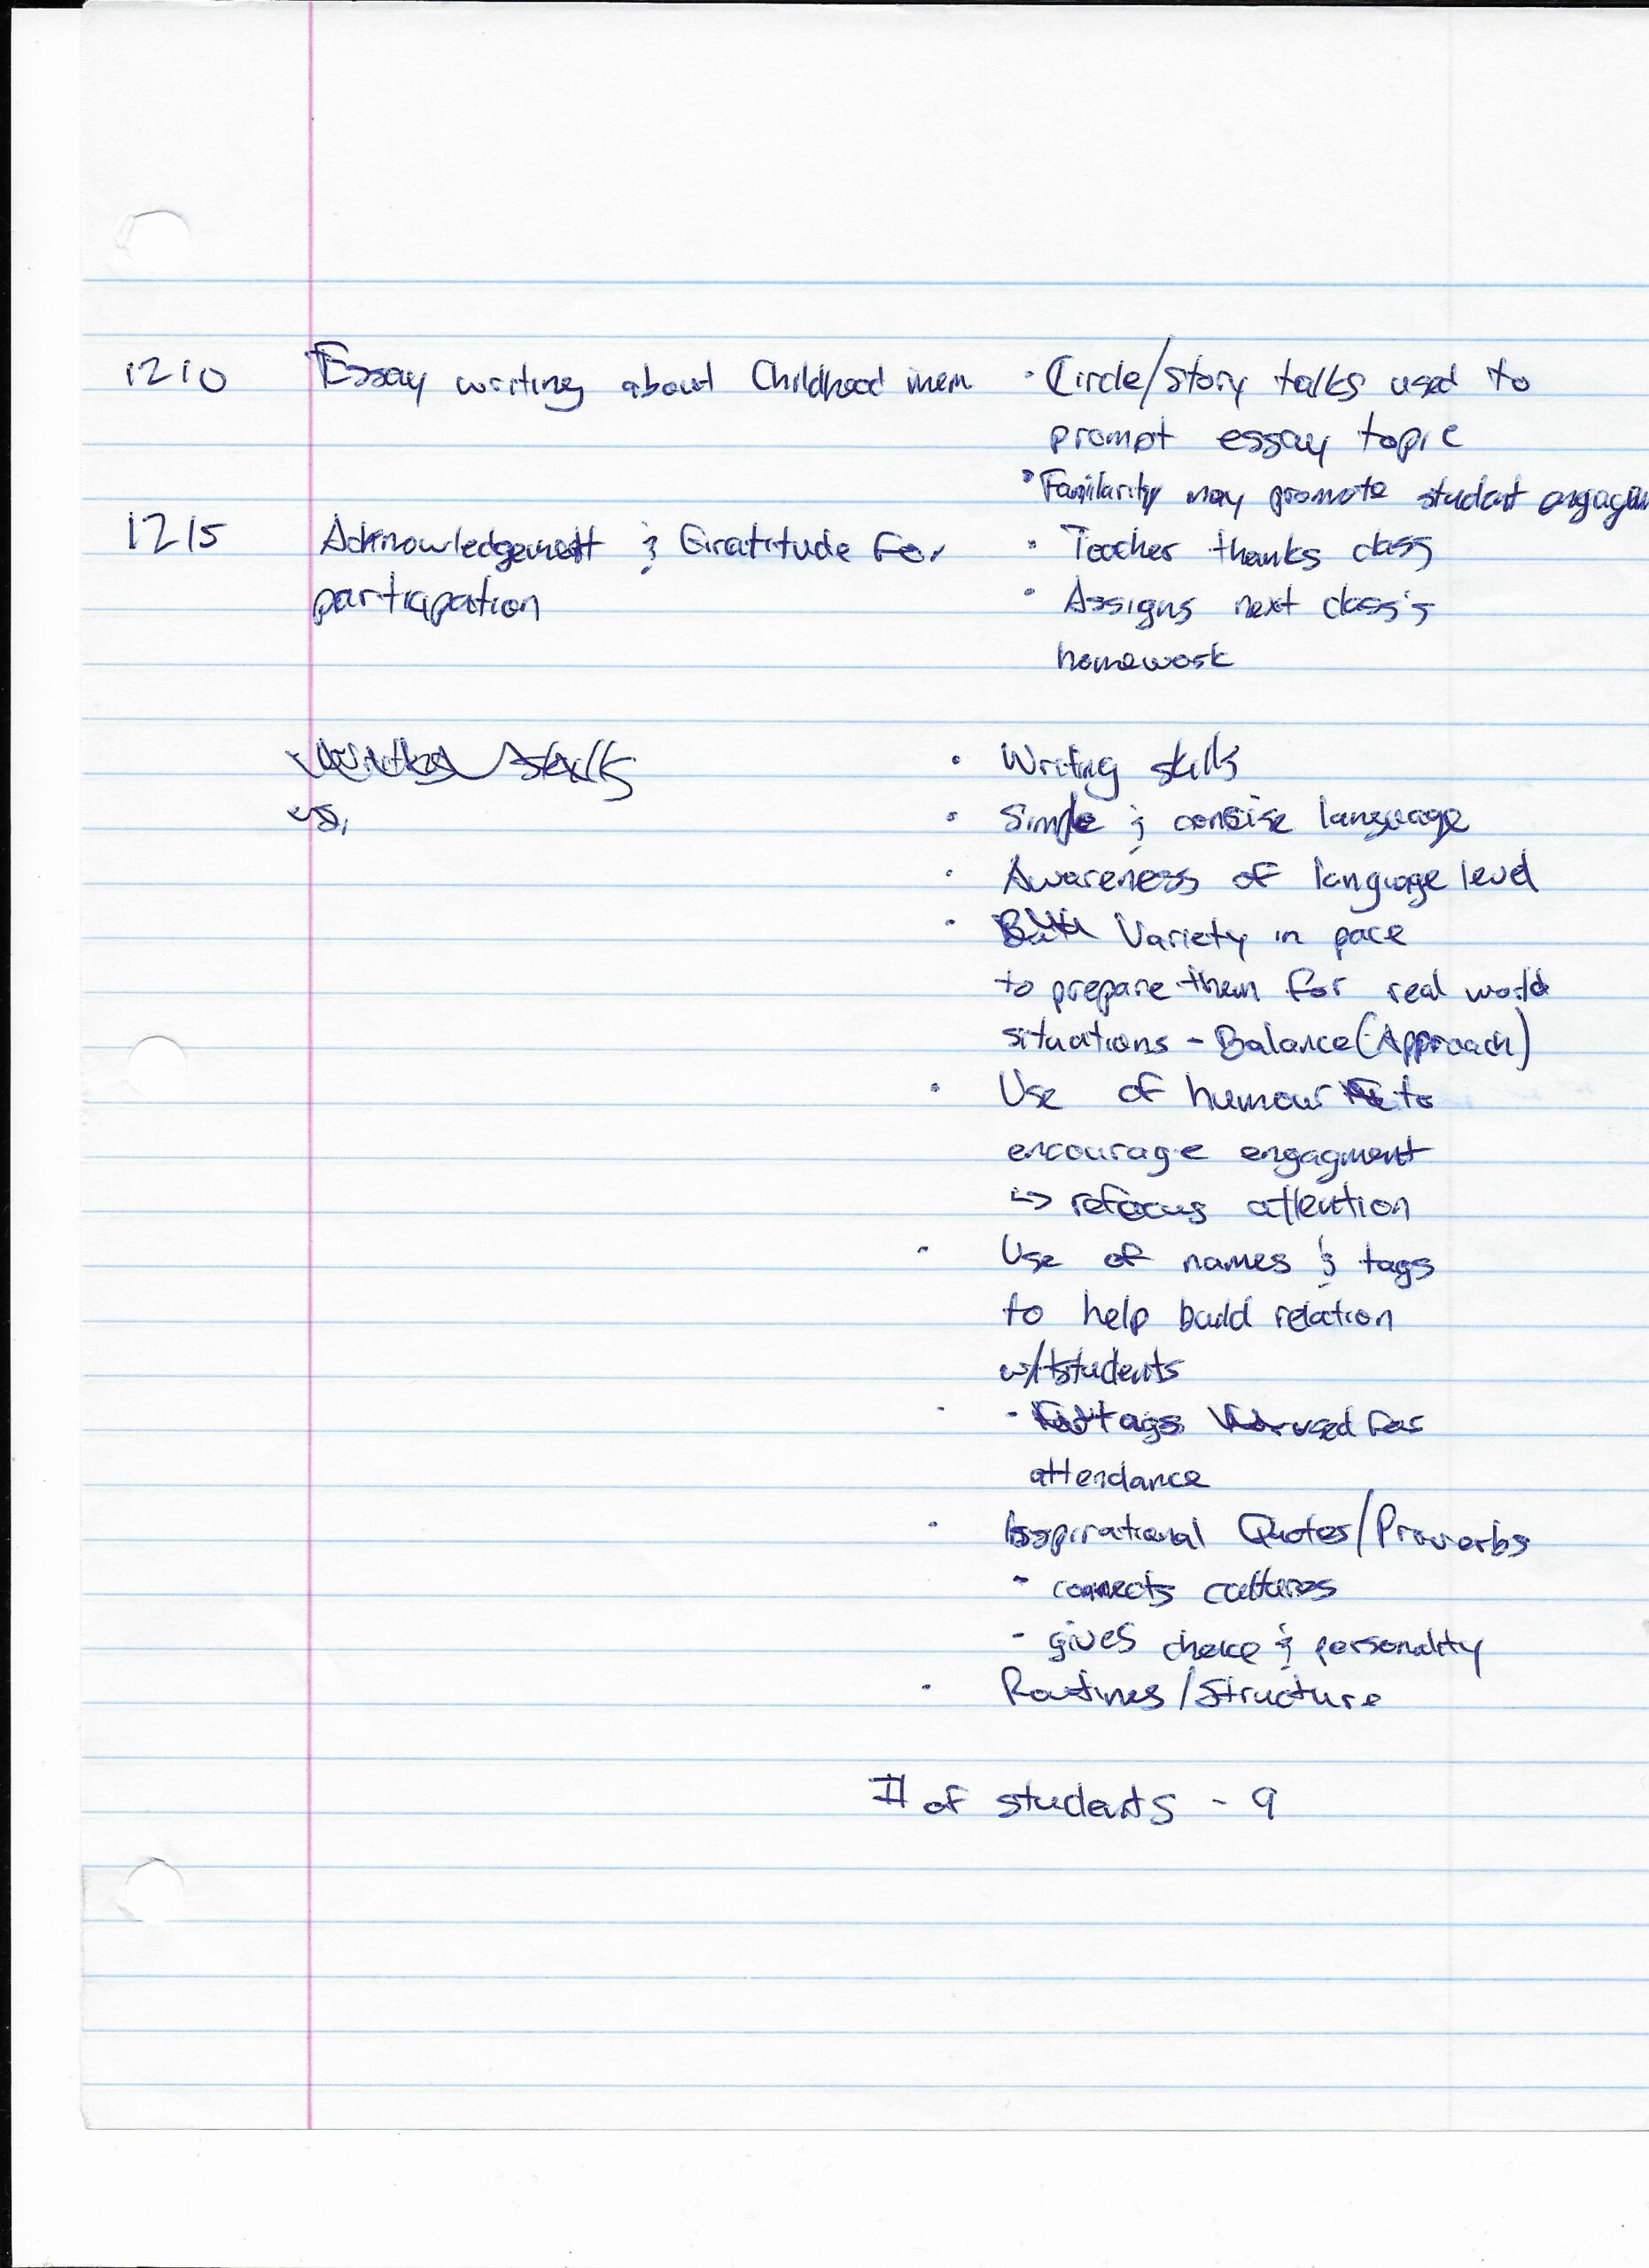 1210 Essay writing about Childhood mem · Circle/story talks used to
prompt essay topic
· Familarity may promote student engagem
1215 Acknowledgement & Gratitude for · Teacher thanks class
participation · Assigns next class's
homework
· Writing skills
· Simple & concise language
· Awareness of language level
· Variety in pace
to prepare them for real world
situations - Balance (Approach)
· Use of humour to
encourage engagment
↳ refocus attention
· Use of names & tags
to help build relation
w/students
· - tags used for
attendance
· Inspirational Quotes/Proverbs
- connects cultures
- gives choice & personality
· Routines/Structure
# of students - 9